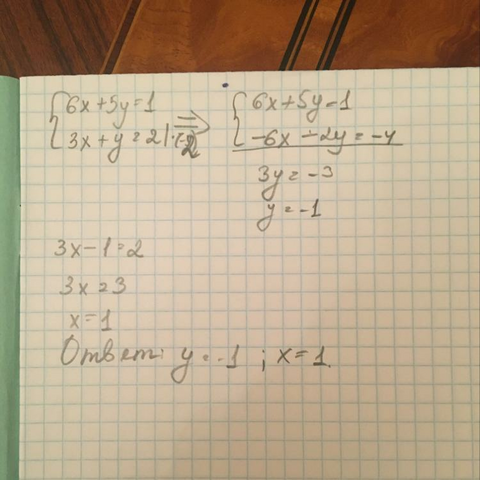 {6x+5y=1
{3x+y=2 |·(-2) ⇒
{6x+5y=1
{-6x-2y=-4
3y=-3
y=-1
3x-1=2
3x=3
x=1
Ответ: y=-1 ; x=1.